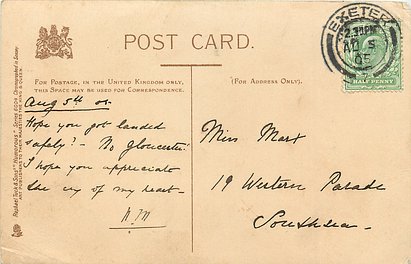 POST CARD.
FOR POSTAGE, IN THE UNITED KINGDOM ONLY,
THIS SPACE MAY BE USED FOR CORRESPONDENCE.
(FOR ADDRESS ONLY).
EXETER
AU 5
05
HALF PENNY
Aug 5th 05.
Hope you got landed
safely? - No gloucester!
I hope you appreciate
the cry of my heart -
Miss Marx
19 Western Parade
Southsea -